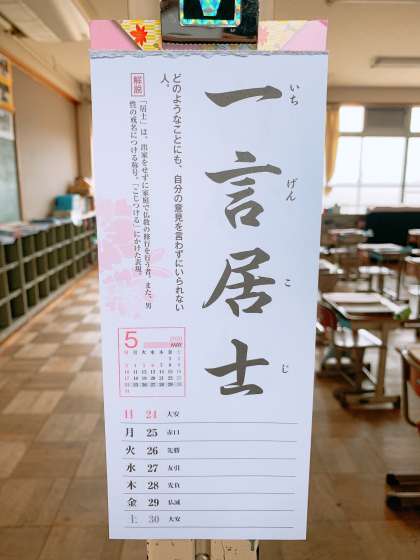 一言居士
いち げん こ じ
どのようなことにも、自分の意見を言わずにいられない
人。
解説
「居士」は、出家をせずに家庭で仏教の修行を行う者。また、男
性の戒名につける称号。「こじつける」にかけた表現。
5
MAY
日 24 大安
月 25 赤口
火 26 先勝
水 27 友引
木 28 先負
金 29 仏滅
土 30 大安